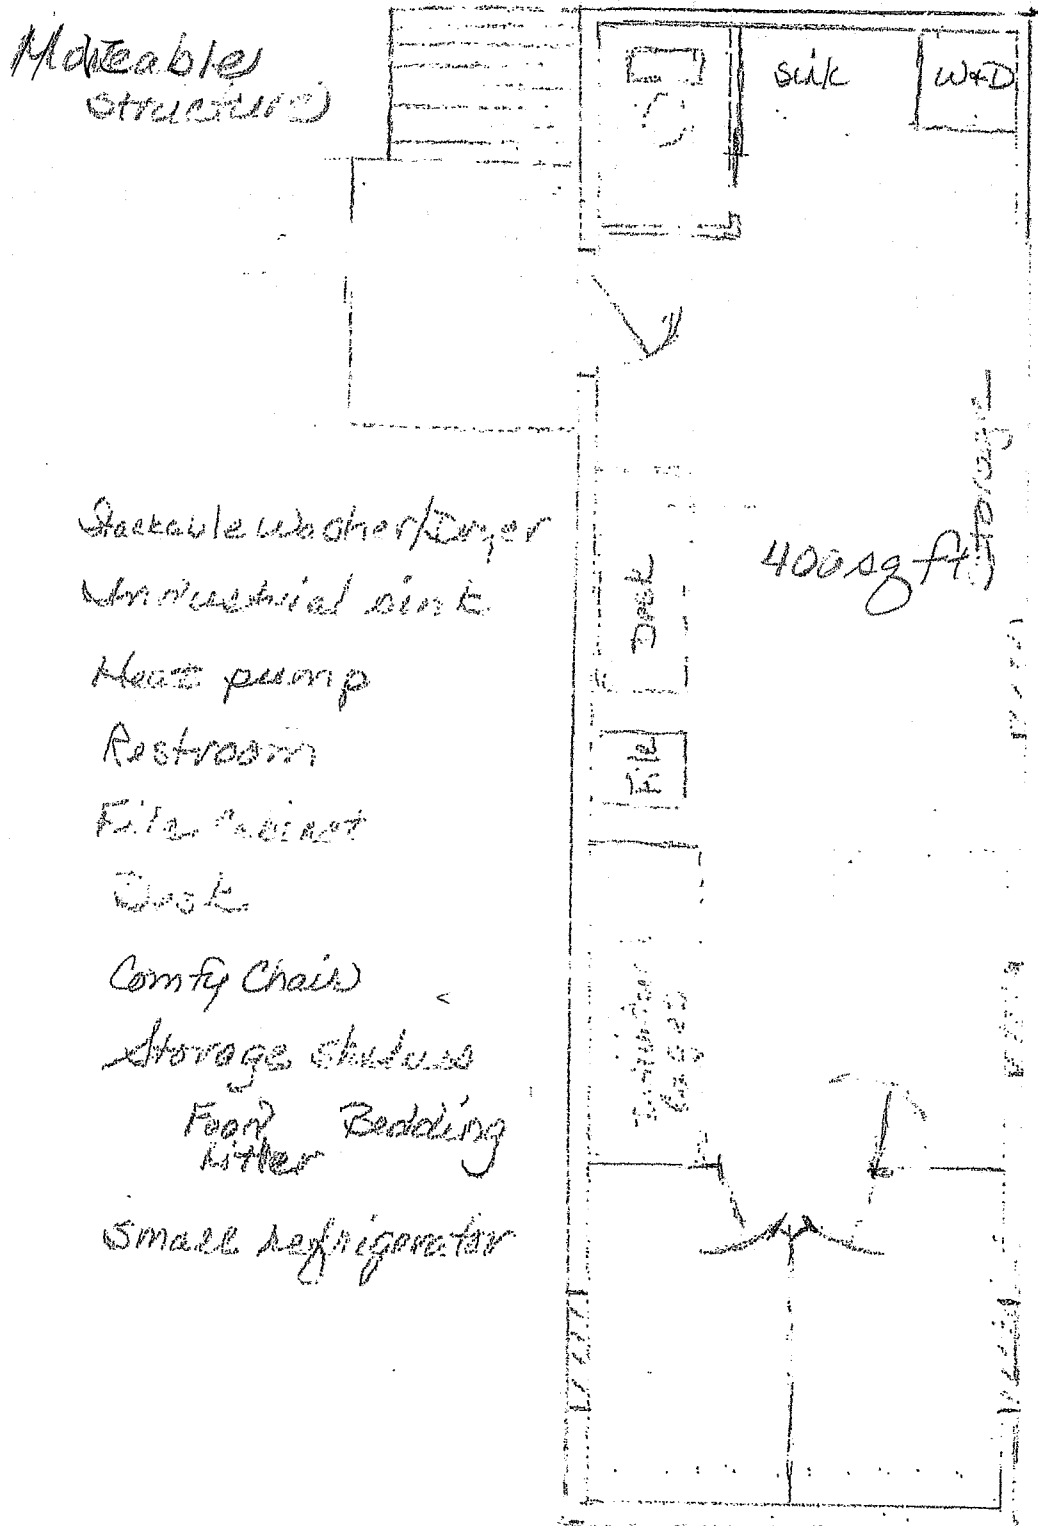 Moveable
structure
sink
W+D
storage
400 sq ft
Stackable Washer/Dryer
Industrial sink
Heat pump
Restroom
File Cabinet
Desk
Comfy Chair
Storage shelves
Food Bedding
Litter
small refrigerator
Desk
File
cages